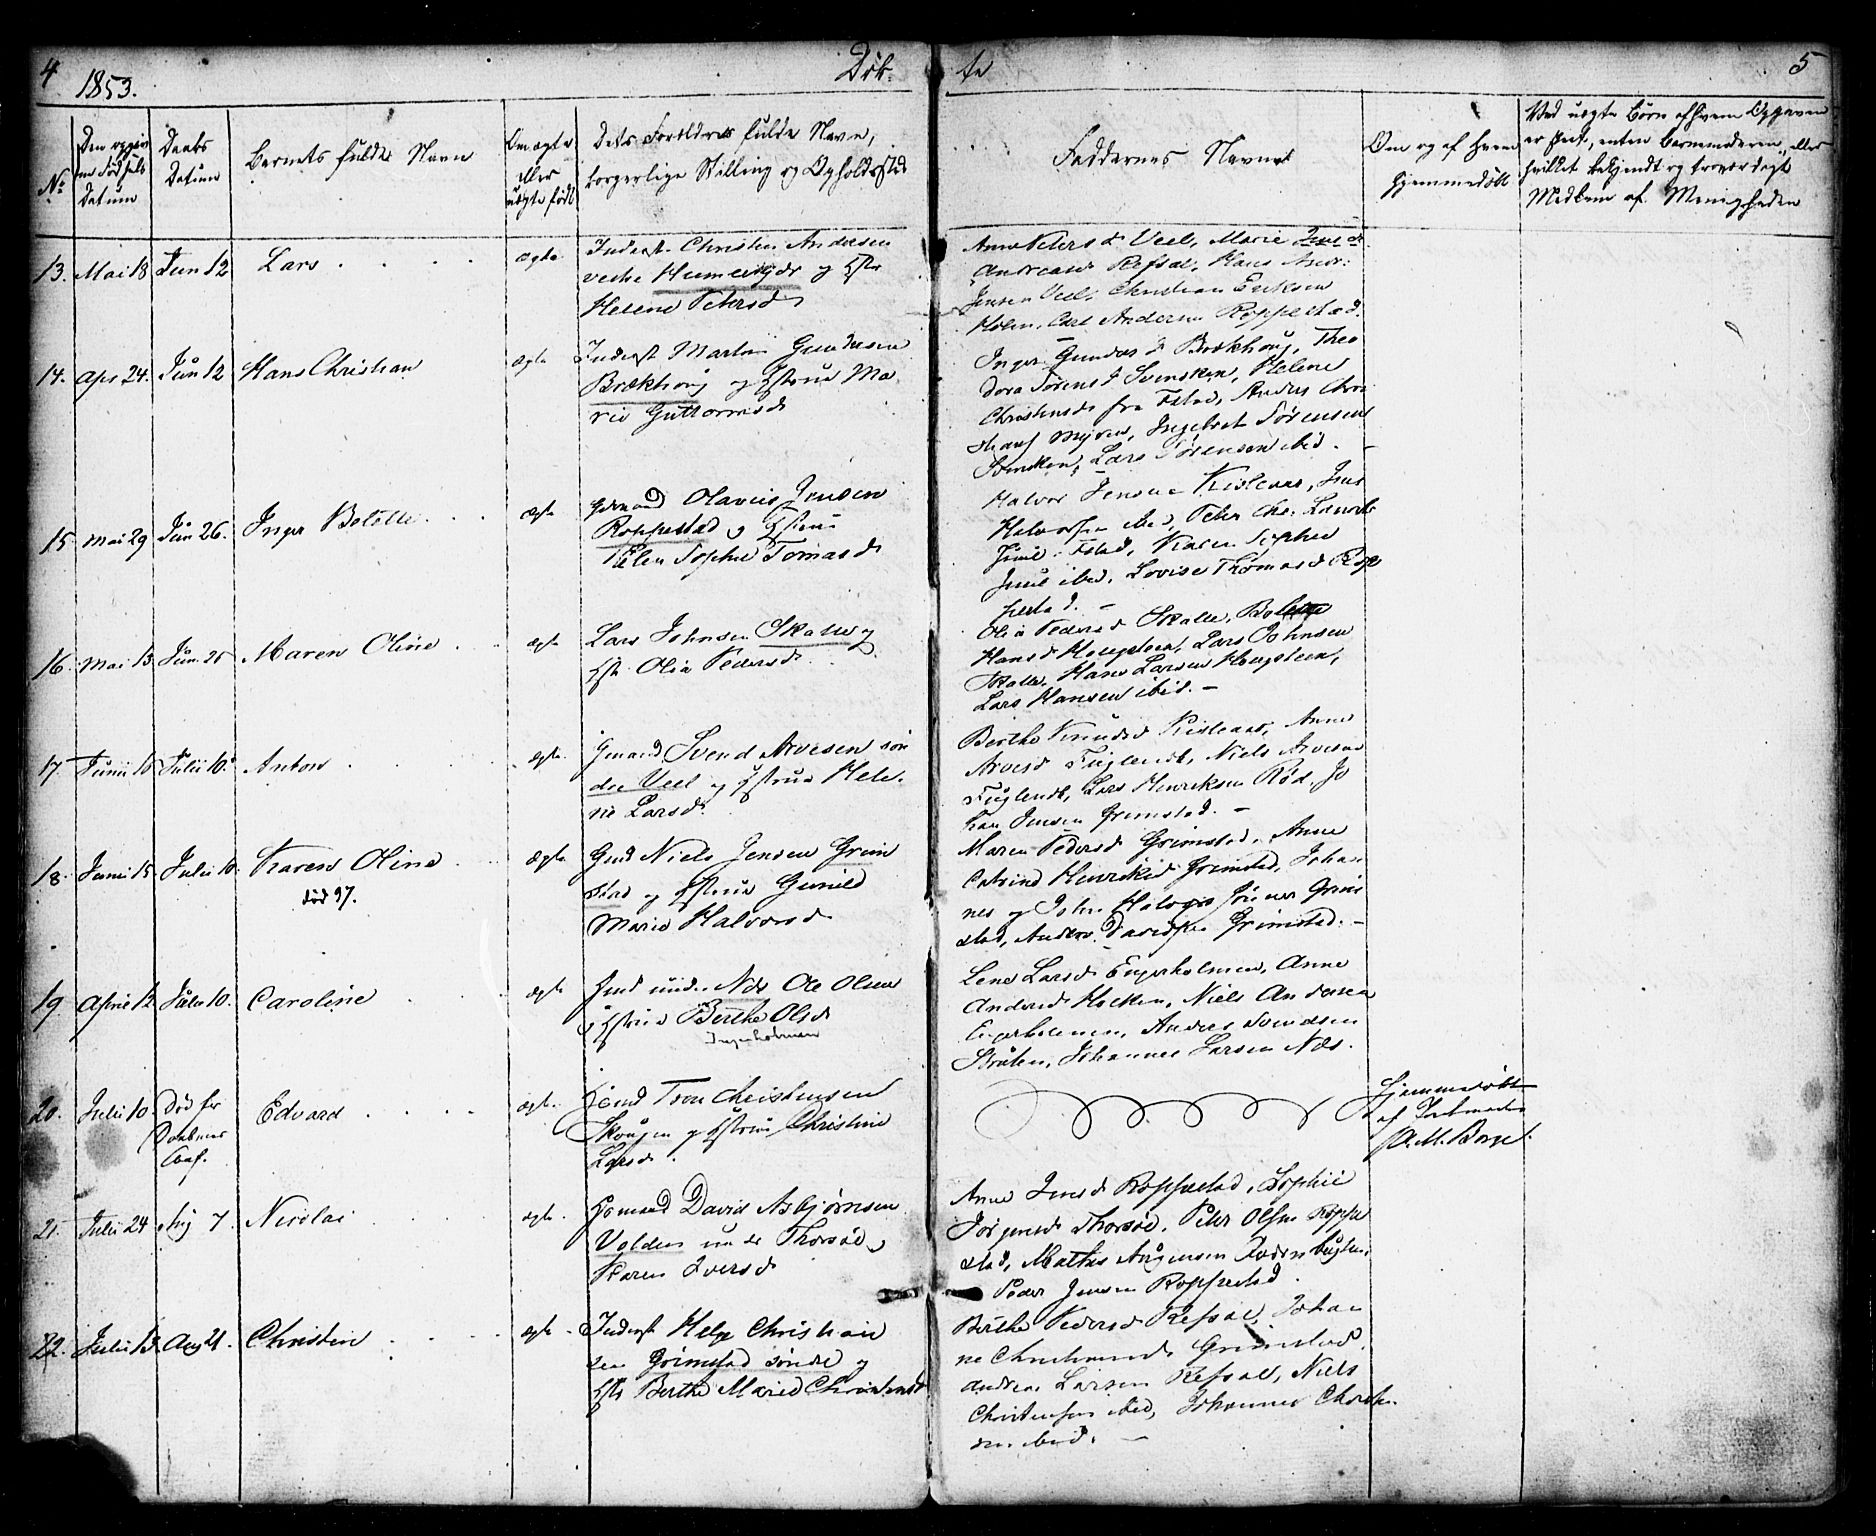 4 1853. Døb- te 5
No
Den opgivne Fødsels Datum
Daabs Datum
Barnets fulde Navn
Om ægte eller uægte født
Dets Forældres fulde Navn,
borgerlige Stilling og Opholdssted
Faddernes Navne
Om og af hvem
hjemmedøbt
Ved uægte Børn af hvem Opgaven
er skeet, enten Barnemoderen, eller
hvilket bekjendt og troværdigt
Medlem af Menigheden
13. Mai 18 Jun 12 Lars ægte
Inderst Christen Andersen
Helene Petersd
Anne Petersd Veel, Marie
Andreasd Refsal, Hans
Jensen Veel, Christian Eriksen
Holm, Carl Andersen Roppestad.
14. Apr 24. Jun 12 Hans Christian ægte
Inderst Martin Gundersen
Brækhoug og Hstrue Ma-
rie Guttormsd
Inger Gundersd Brækhoug, Theo
dora Sørensd Svensken, Helene
Christensd fra Fstad, Anders Chri
Myren, Ingebret Sørensen
Svensken, Lars Sørensen ibid. -
15 Mai 29 Jun 26. Inger Bolette ægte
Gdmand Olavus Jensen
Roppestad og Hstrue
Elen Sophie Tomasd
Halvor Jensen Kislaas, Jens
Halvorsen ibid, Peter
Karen Sophie
Juul ibid, Lovise Thomasd Rop
pestad. -
16. Mai 13 Jun 26 Maren Oline ægte
Lars Johnsen Skalle og
Hst. Olia Pedersd
Olia Pedersd Skalle, Bolette
Hansd Hougsteen, Lars Johnsen
Skalle, Hans Larsen Hougsteen,
Lars Hansen ibid. -
17. Junii 10 Julii 10. Anton ægte
Gmand Svend Arvesen søn
dre Veel og Hstrue Hele-
ne Larsd.
Berthe Knudsd Kislaas, Anne
Arvesd Fuglevik, Niels Arvesen
Fuglevik, Lars Henriksen Rød, Jo
han Jensen Grimstad. -
18. Junii 15 Julii 10. Karen Oline ægte
død 97.
Gmd Niels Jensen Grim
stad og Hstrue Gunild
Marie Halvorsd
Maren Pedersd Grimstad, Anne
Catrine Henriksd Grimstad, Johan
nes og John Halvors Sønner Grim
stad, Anders Davidsen Grimstad. -
19 April 12 Julii 10. Caroline ægte
Jmd under Næs Ole Olsen
og Hstrue Berthe Olsd
Ingerholmen
Lene Larsd Engerholmen, Anne
Andersd Holken, Niels Andersen
Engerholmen, Anders Svendsen
Bråten, Johannes Larsen Næs.
20. Julii 10. Død før
Daaben Edvard ægte
Tron Christensen
Skougen og Hstrue Christine
Larsd.
Hjemmedøbt
af Jordmoder
A. M. Borge.
21. Julii 24 Aug 7. Nicolai ægte
Gdmand David Asbjørnsen
Volden under Thorsø og
Karen Iversd
Anne Jensd Roppestad, Sophie
Jørgensd Thorsø, Peter Olsen Roppe
stad, Mattis Jørgensen
Peder Jensen Roppestad.
22. Julii 13 Aug 21. Christine ægte
Inderst Helge Christian
sen Grimstad søndre og
Hst Berthe Marie Christensd
Berthe Pedersd Refsal, Johan
ne Christiansd Grimstad,
Andreas Larsen Refsal, Niels
Christensen ibid, Johannes Christen
sen ibid. -